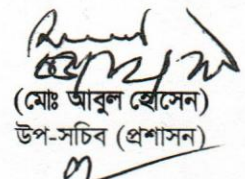 (মোঃ আবুল হোসেন)
উপ-সচিব (প্রশাসন)